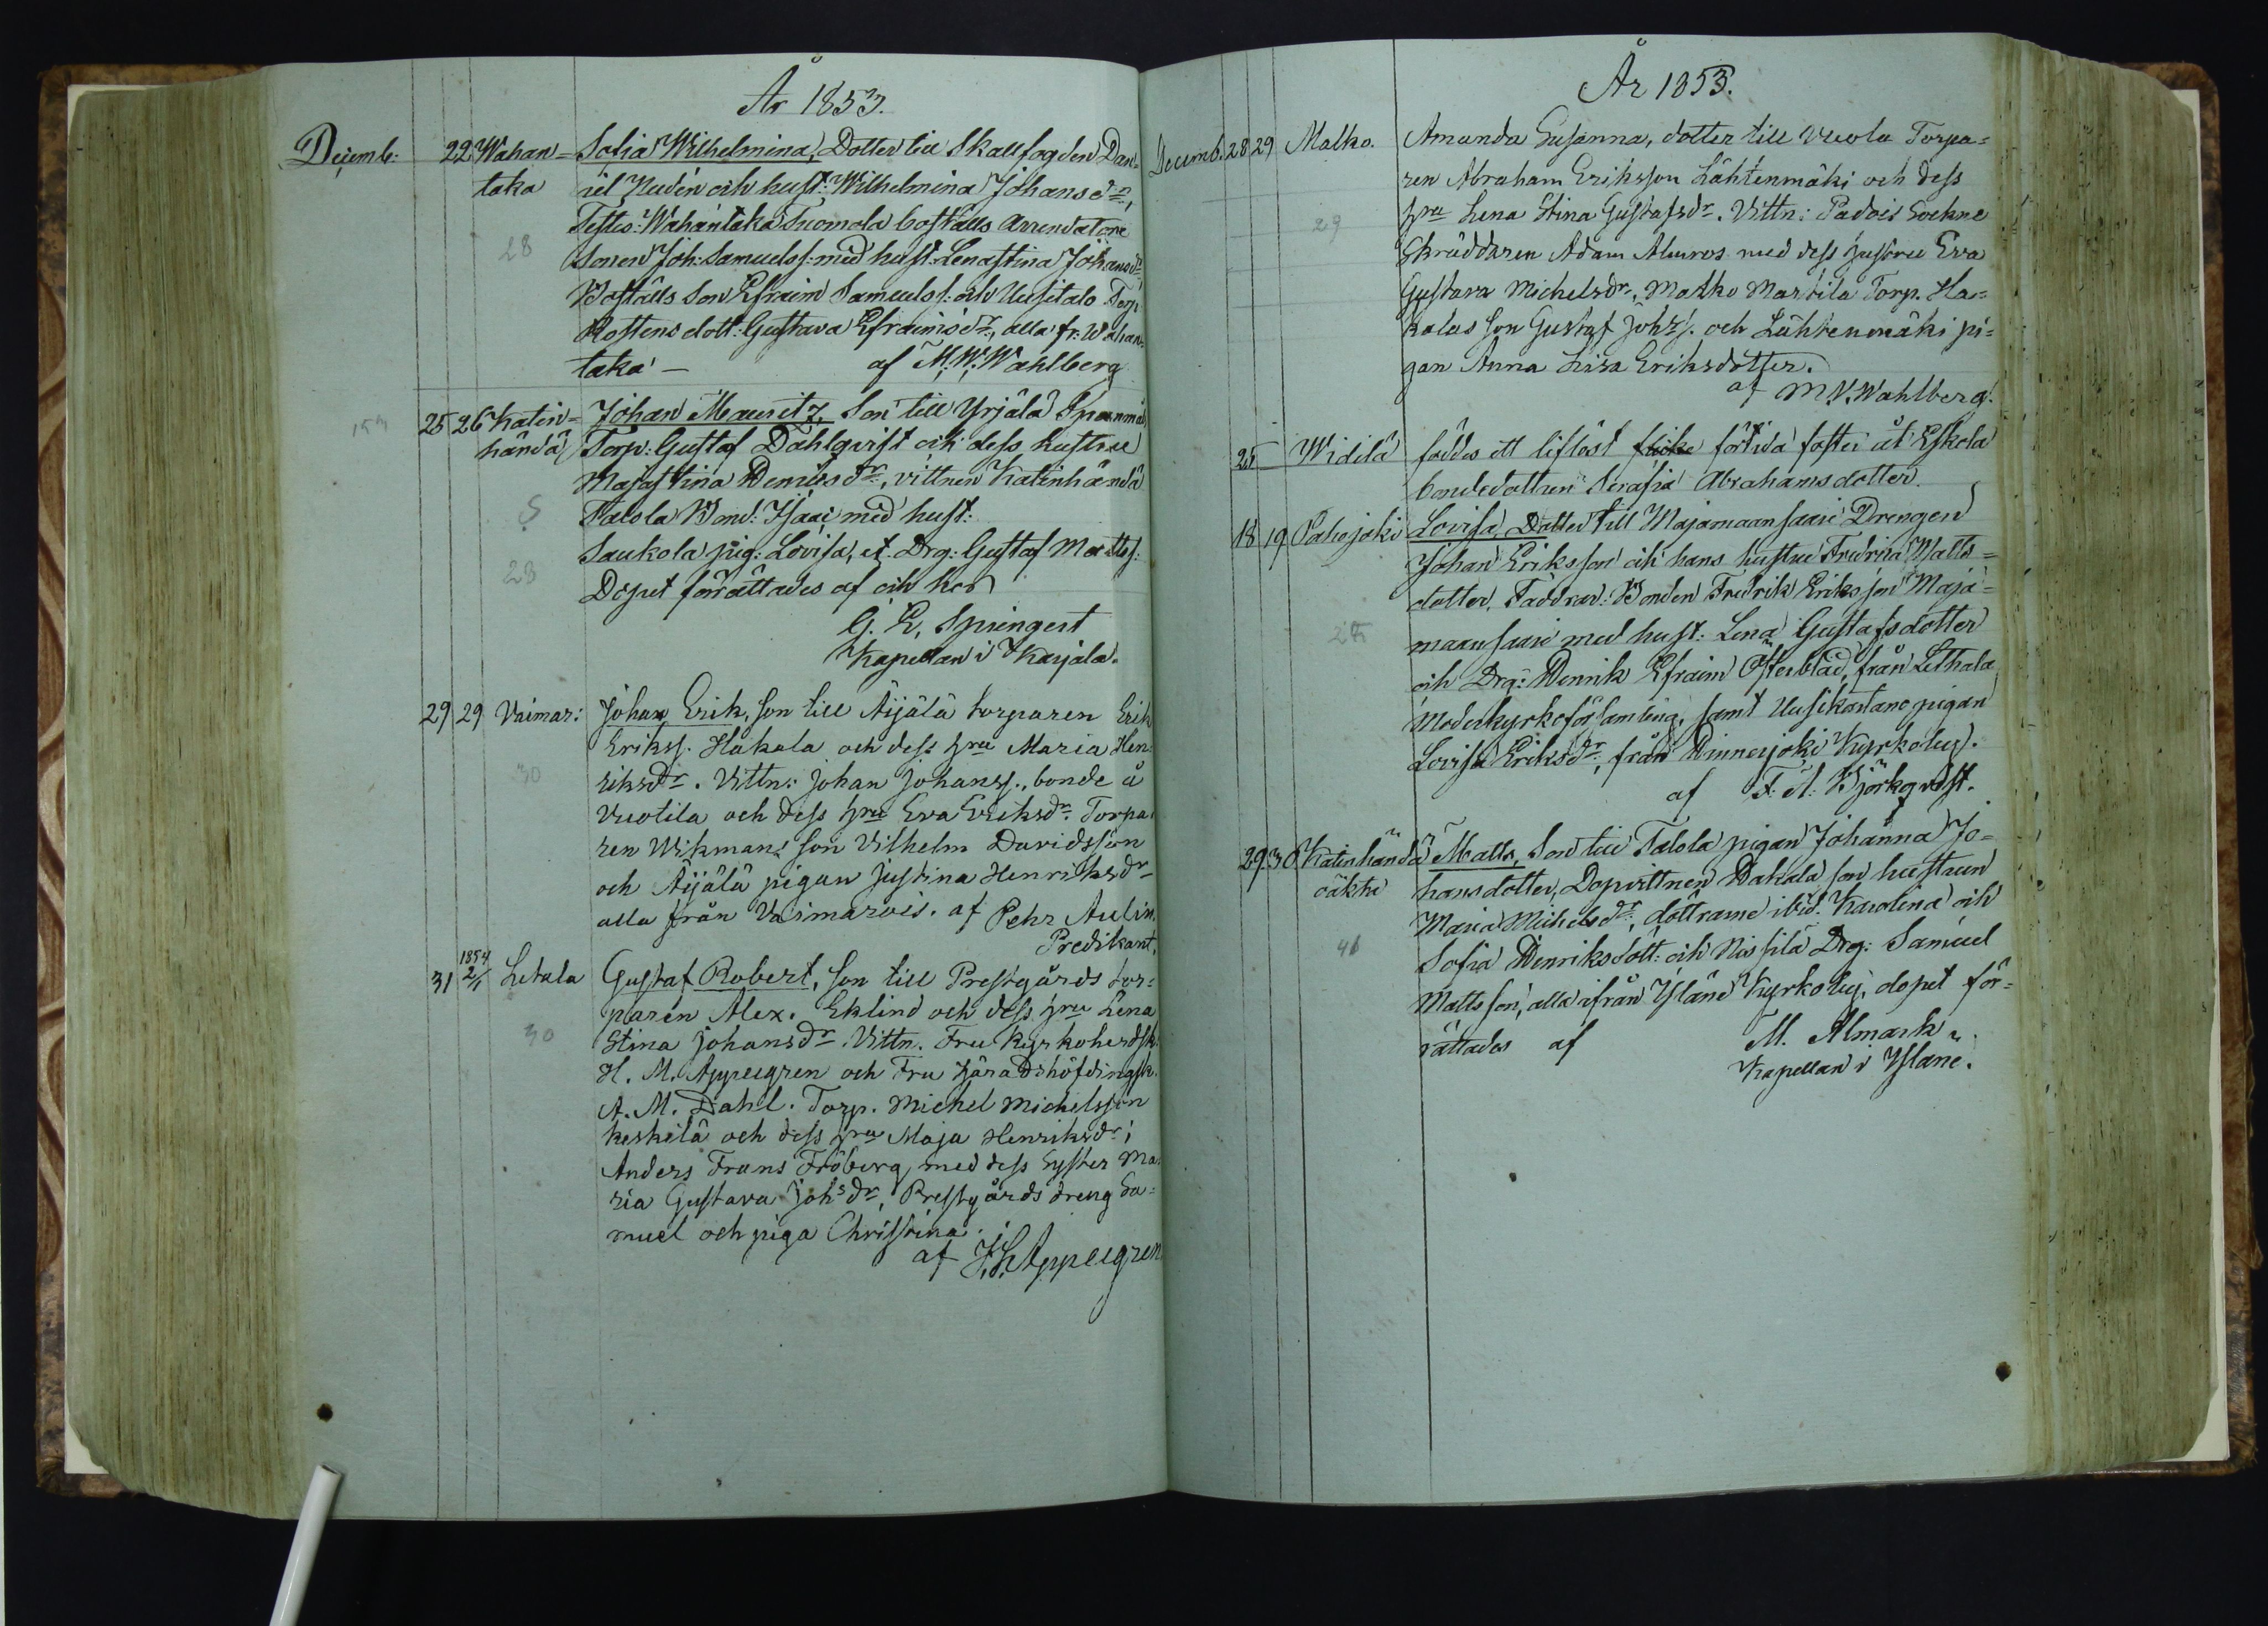 År 1853.
Decemb: 22 Wahan= Sofia Wilhelmina, Dotter till Skallfogden Dan=
taka iel Nudén och hust: Wilhelmina Johansdr,
Testes: Wahantaka Tuomola boställs Arrendatore
28 Sonen Joh: Samuelss: med hust: Lenastina Johansdr,
Boställs Son Efraim Samuelss: och Uusitalo Torp:
Rostens dott: Gustava Efraimsdr, alla fr: Wahan=
taka — af M. W. Wahlberg
25 26 Katin= Johan Mauritz, Son till Yrjälä
händä Torp: Gustaf Dahlqvist och dess hustru
Majastina Henricsdr, vittnen Katinhändä
Talola Bond: Isaac med hust:
Saukola pig: Lovisa, et Drg: Gustaf Mattss:
28
Dopet förrättades af och hos
G. E. Springert
Kapellan i Karjala.
29 29 Vaimar: Johan Erik, son till Äijälä torparen Erik
Erikss. Hakala och dess hru Maria Hen=
30 riksdr. Vittn: Johan Johanss., bonde å
Vuotila och dess hru Eva Eriksdr. Torpa=
ren Wikmans son Vilhelm Davidsson
och Äijälä pigan Justina Henriksdr
alla från Vaimarois. af Pehr Aulin.
Predikant.
31 1854 2/1 Letala Gustaf Robert, son till Prestgårds tor=
paren Alex. Eklind och dess hru Lena
30 Stina Johansdr. Vittn. Fru Kyrkoherdsk.
H. M. Appelgren och Fru Häradshöfdingsk.
A. M. Dahl. Torp. Michel Michelsson
Keskilä och dess hru Maja Henriksdr;
Anders Frans Fröberg med dess Syster Ma=
ria Gustava Johsdr, Prestgårds dreng Sa=
muel och piga Christina.
af J. S. Appelgren
År 1853.
Decemb. 28 29 Malko. Amanda Susanna, dotter till Vuola Torpa=
ren Abraham Eriksson Lähtenmäki och dess
29 hru Lena Stina Gustafsdr. Vittn: Padois Sockne
Skräddaren Adam Almros med dess hustru Eva
Gustava Michelsdr, Malko Marvila Torp. Ha=
kalas son Gustaf Johss. och Lähtenmäki pi=
gan Anna Lisa Eriksdotter.
af M. W. Wahlberg.
25 Widilä föddes ett liflöst flicke förtida foster åt Eskola
bondedottren Serafia Abrahamsdotter.
18 19 Pahojoki Lovisa, Dotter till Majamaansaari Drengen
Johan Eriksson och hans hustru Fredrica Matts=
dotter. Faddrar: Bonden Fredrik Eriksson Maja=
maansaari med hust: Lena Gustafsdotter
och Drg: Henrik Efraim Österblad, från Lethala
Moderkyrkoförsamling, samt Uusikartano pigan
Lovisa Eriksdr, från Hinnerjoki Kyrkoby.
af F: A: Björkqvist.
29 30 Katinhändä Matts, Son till Talola pigan Johanna Jo=
oäkta hansdotter, Dopvittnen Hakala son hustrun
Maria Michelsdr, döttrarne ibid. Karolina och
46 Sofia Henriksdott: och Nissilä Drg: Samuel
Mattsson, alla ifrån Yläne Kyrkoby, dopet för=
rättades af M. Almark
Kapellan i Yläne.